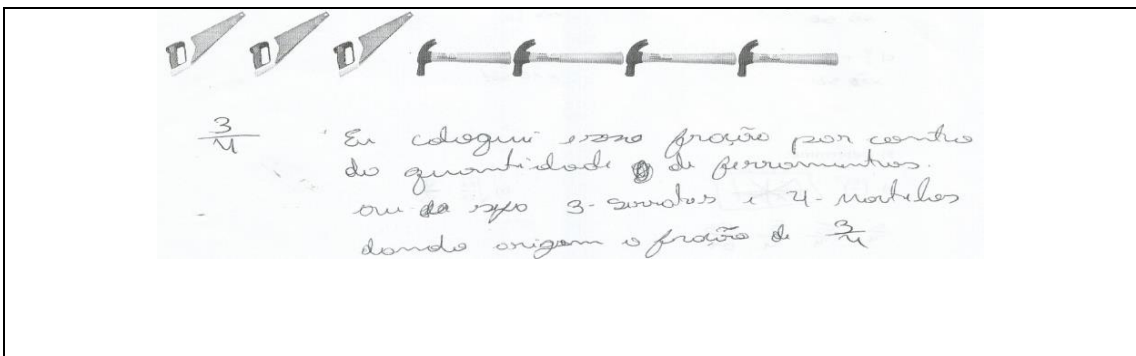 3/4 Eu coloquei essa fração por contra
da quantidade de ferramentas.
ou seja 3-serrotes e 4-martelos
dando origem a fração de 3/4